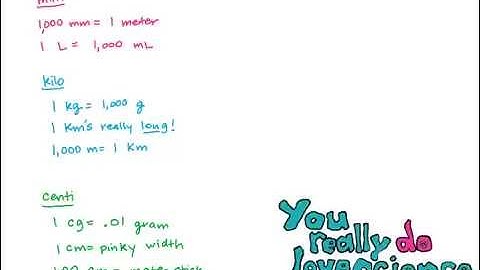 1,000 mm = 1 meter
1 L = 1,000 mL
kilo
1 kg = 1,000 g
1 Km's really long!
1,000 m = 1 Km
centi
1 cg = .01 gram
1 cm = pinky width
You
really do